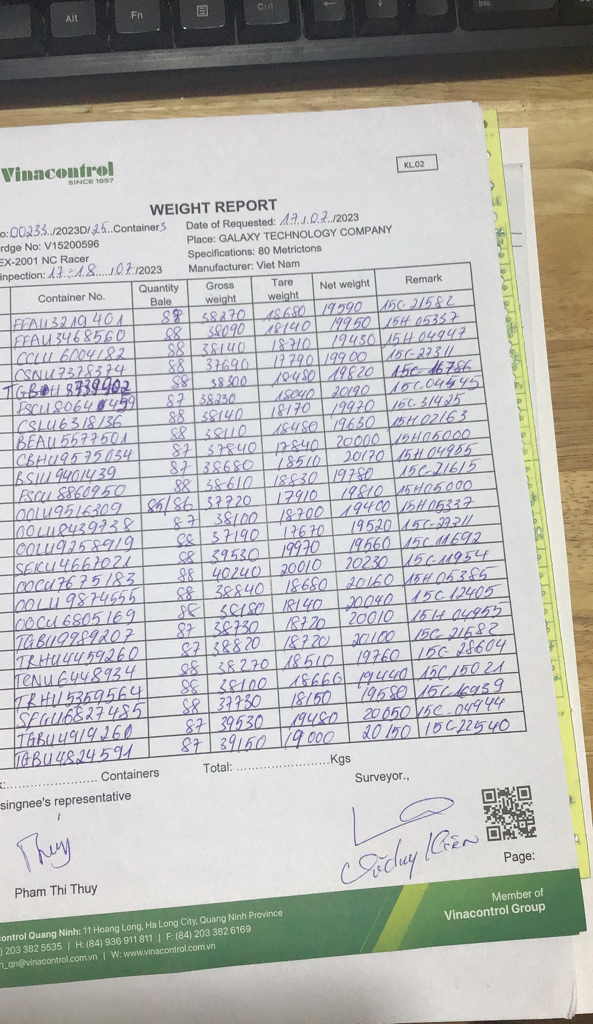 Alt
Fn
Ctrl
Ins
Vinacontrol
SINCE 1957
KL.02
WEIGHT REPORT
o: 00233../2023D/25..Containers
Date of Requested: 17../.07../2023
rdge No: V15200596
Place: GALAXY TECHNOLOGY COMPANY
EX-2001 NC Racer
Specifications: 80 Metrictons
inspection: 17÷18..../07./2023
Manufacturer: Viet Nam
Container No. Quantity Bale Gross weight Tare weight Net weight Remark
FFAU3219401 88 38270 18680 19590 15C-21582
FFAU3468560 88 38090 18140 19950 15H 05337
CCLU 6004182 88 38140 18710 19430 15H 04947
CSNU7378374 88 37690 17790 19900 15C-27311
TGBH 8739902 88 38300 18480 19820 15C-16786
87 38230 18040 20190 15C-04545
CSLU6318136 88 38140 18170 19970 15C-31925
BEAU5577501 88 38110 18480 19630 15H 02163
CBHU9575034 87 37840 17840 20000 15H05000
BSIU9401439 87 38680 18510 20170 15H 04955
FSCU 8860950 88 38610 18830 19780 15C-21615
OOLU9516309 85/86 37720 17910 19810 15H05000
OOLU8439738 87 38100 18700 19400 15H05337
OOLU9258919 88 37190 17670 19520 15C-27311
SEKU4667021 88 39530 19970 19560 15C-11692
OOCU7675183 88 40240 20010 20230 15C-11954
OOLU 9874555 88 38840 18680 20160 15H 05385
OOCU6805169 88 38180 18140 20040 15C 12405
TGBU9989207 87 38730 18720 20010 15H 04955
TRHU4459260 87 38820 18720 20100 15C-21582
TCNU6448934 88 38270 18510 19760 15C-28604
TRHU5369564 88 38100 18660 19440 15C15021
SEGU6827485 88 37730 18150 19580
TGBU4919260 87 39530 19480 20050 15C-04944
TGBU4824591 87 39150 19000 20150 15C-22540
:...................... Containers Total: ........................Kgs
singnee's representative
Surveyor.,
Thuy
Pham Thi Thuy
Page:
control Quang Ninh: 11 Hoang Long, Ha Long City, Quang Ninh Province
) 203 382 5535 | H: (84) 936 911 811 | F: (84) 203 382 6169
n_qn@vinacontrol.com.vn | W: www.vinacontrol.com.vn
Member of
Vinacontrol Group